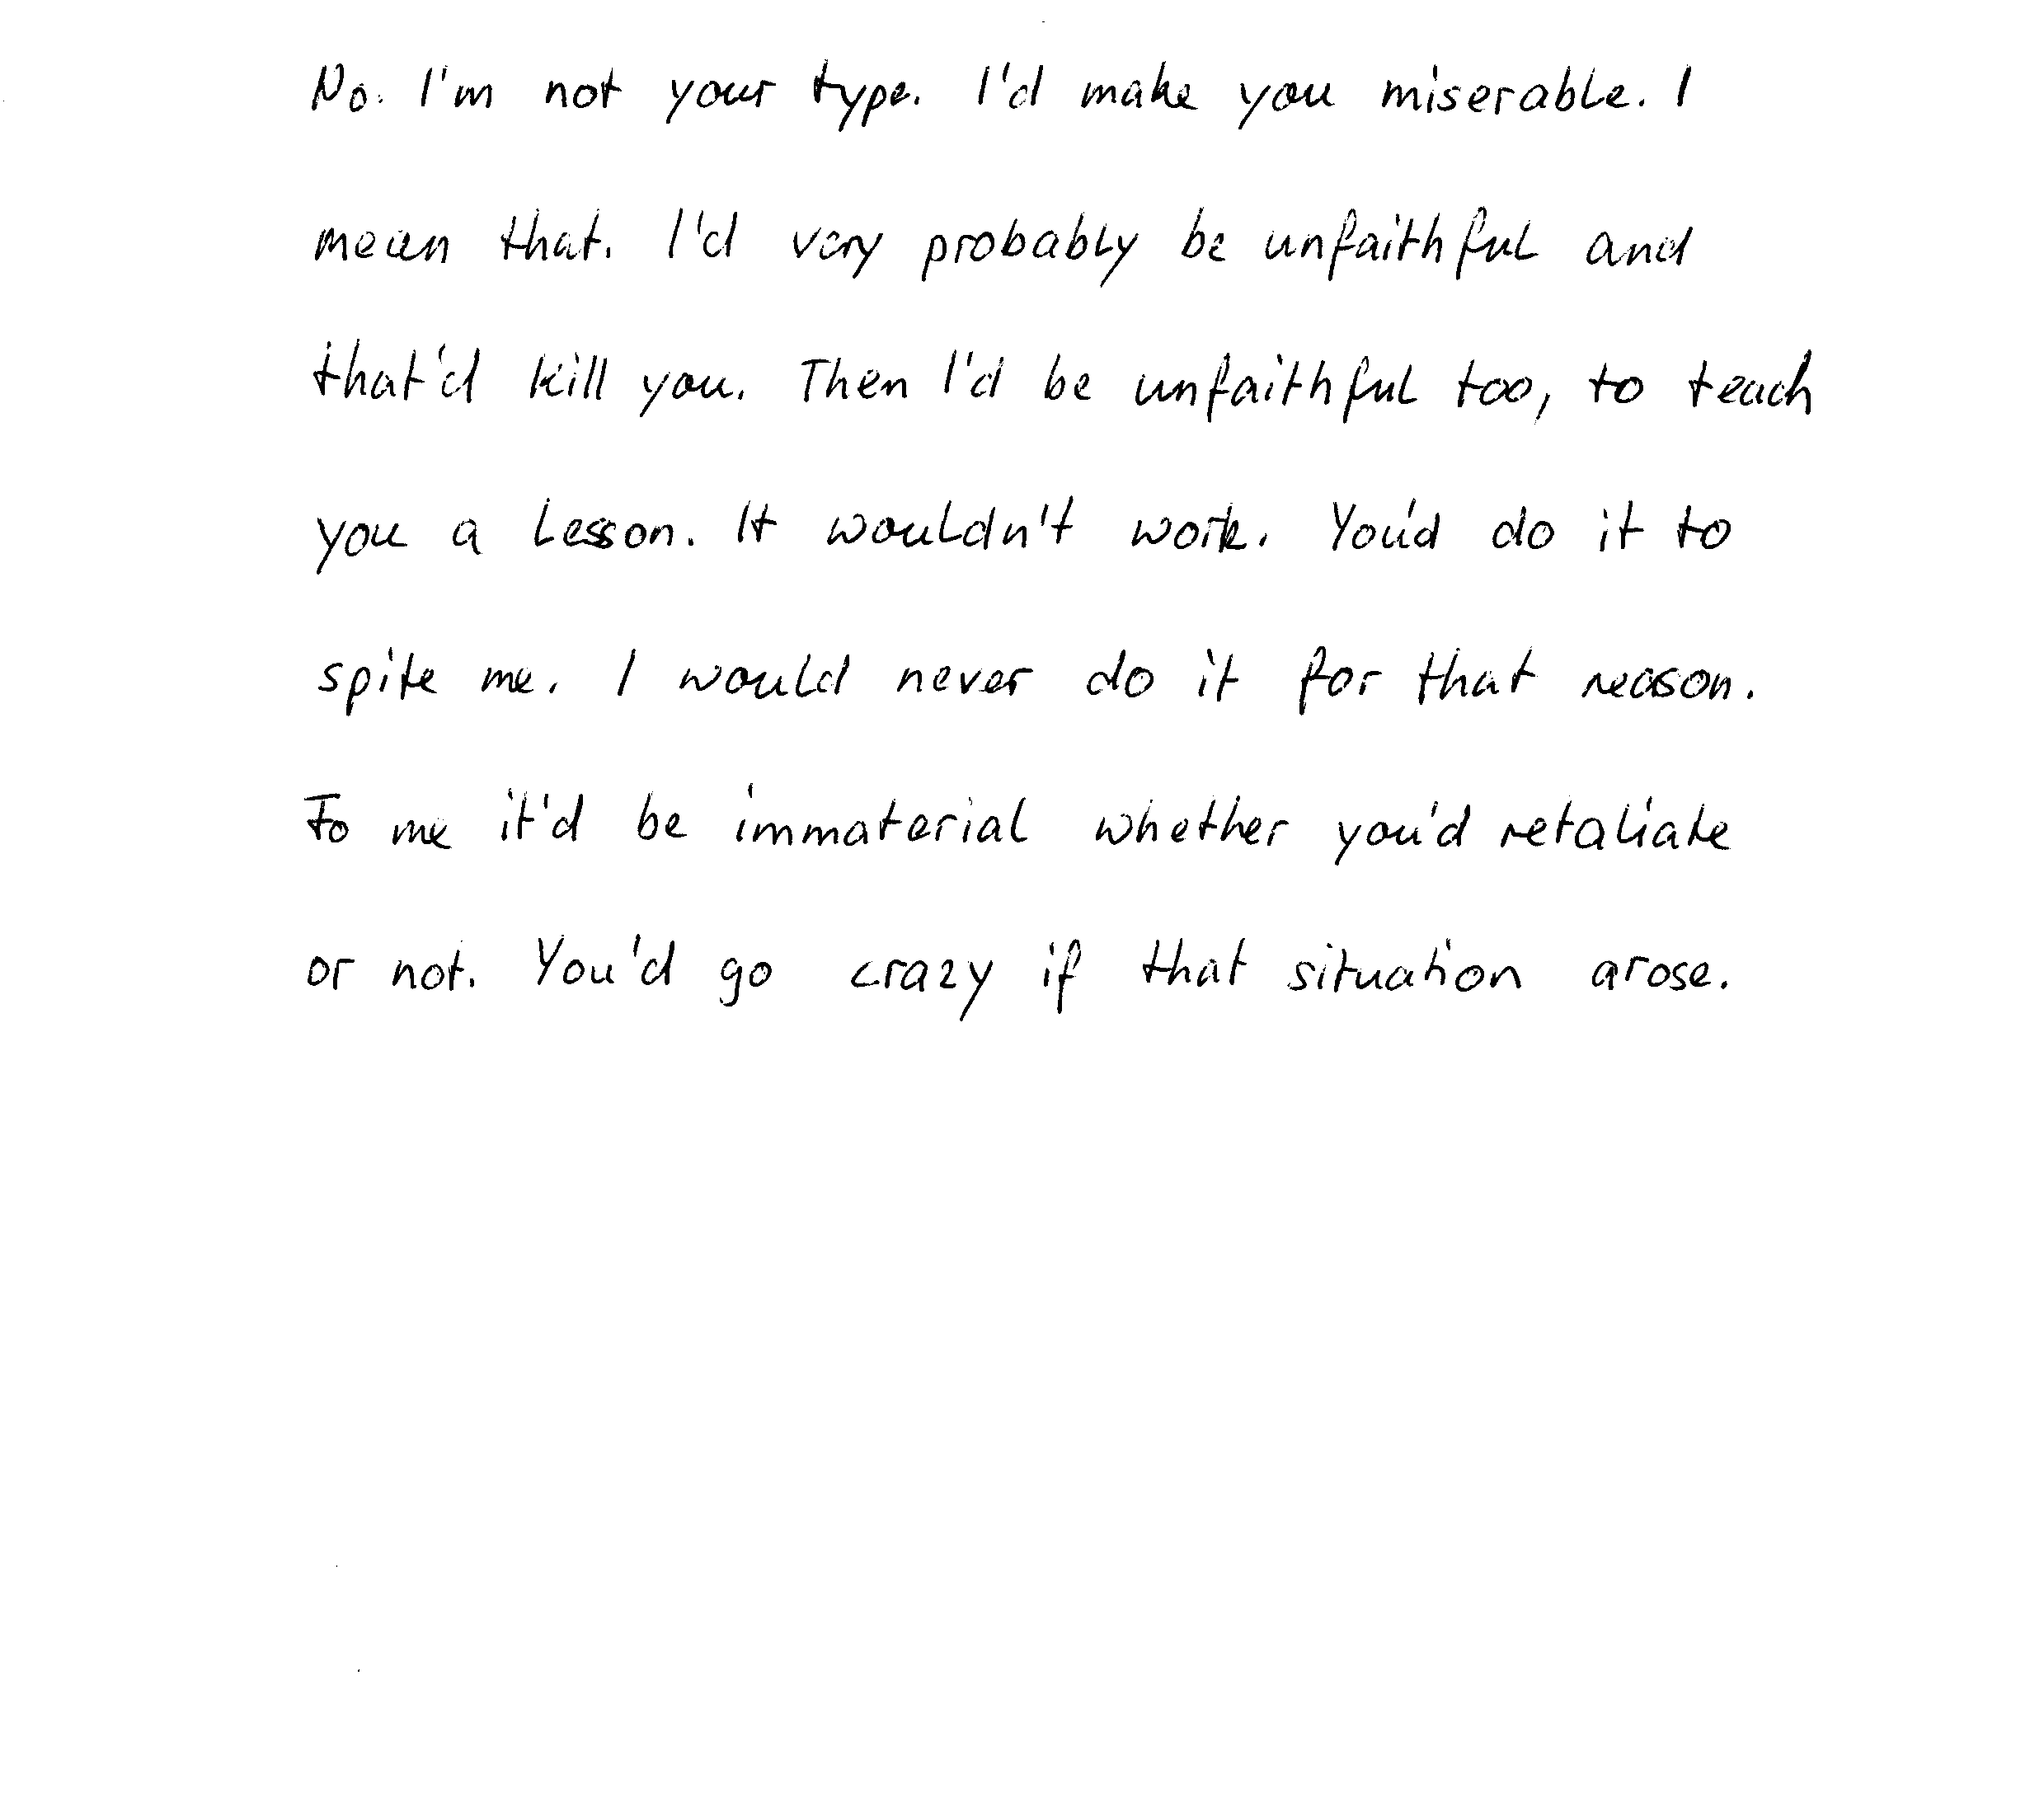 No. I'm not your type. I'd make you miserable. I
mean that. I'd very probably be unfaithful and
that'd kill you. Then I'd be unfaithful too, to teach
you a lesson. It wouldn't work. You'd do it to
spite me. I would never do it for that reason.
To me it'd be immaterial whether you'd retaliate
or not. You'd go crazy if that situation arose.